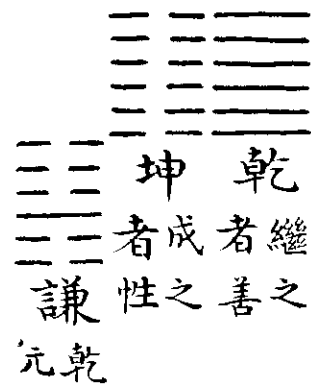 乾
繼之
者善
坤
成之
者性
謙
乾元